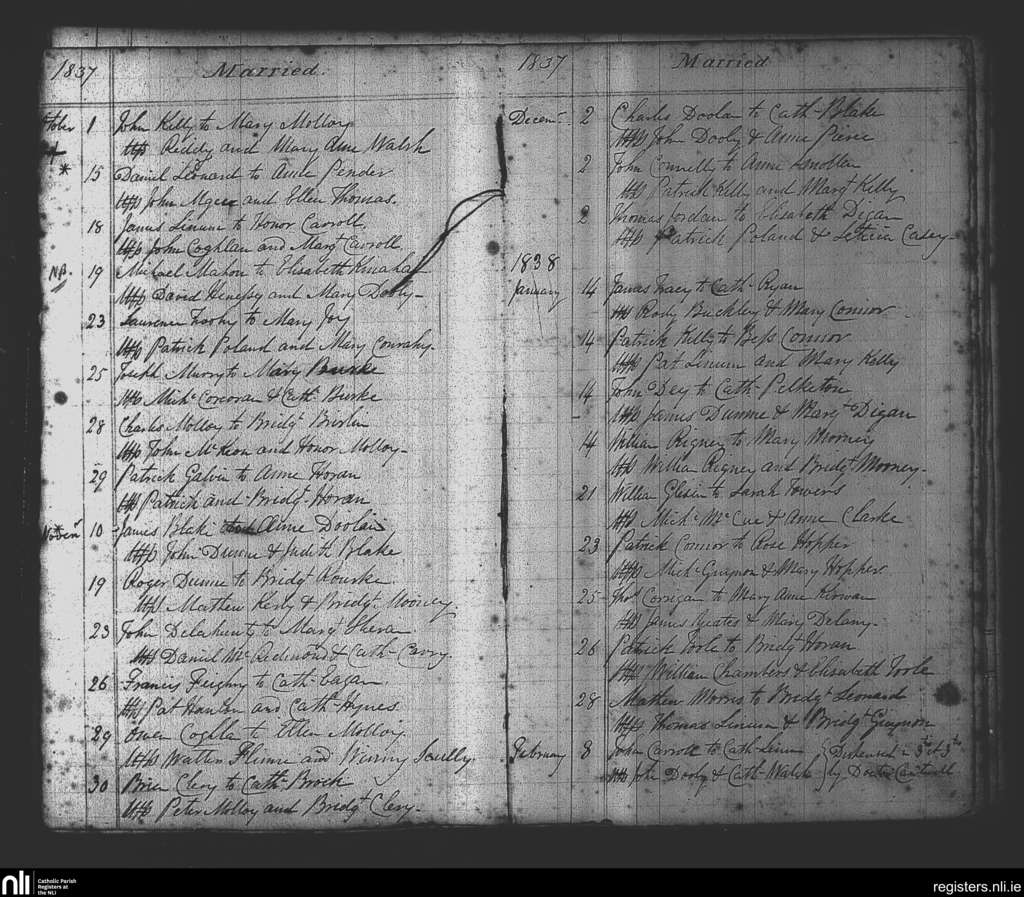 1837 Married.
October 1 John Kelly to Mary Molloy
Wtts Reddy and Mary Anne Walsh
+
* 15 Daniel Leonard to Anne Pender
Wtts John and Ellen Thomas.
18 James Linum to Honor Carroll.
Wtts John Coghlan and Margt Carroll.
NB. 19 Michael Mahon to Elisabeth
Wtts David Henessy and Mary Dooly
23 Laurence to Mary Joy
Wtts Patrick Poland and Mary Conrahy.
25 Joseph Murry to Mary Bourke
Wtts Michl Corcoran & Cath Burke
28 Charles Molloy to Bridgt Brislin
Wtts John McKeon and Honor Molloy
29 Patrick Galvin to Anne Horan
Wtts Patrick and Bridgt Horan
Novem 10 James Blake Anne Doolan
Wtts John Dunne & Judith Blake
19 Roger Dunne to Bridgt Rourke
Wtts Mathew Kerly & Bridgt Mooney.
23 John Delahunt to Margt Shera
Wtts Daniel McRedmond & Cath
26 Francis Feighry to Cath Eagan
Wtts Pat Hanlon and Cath Hynes
29 Owen Coghlan to Ellen Molloy.
Wtts Flinne and Winny Scully
30 Brien Clery to Cath Brock
Wtts Peter Molloy and Bridgt Clery
1837 Married
Decem 2 Charles Doolan to Cath Blake
Wtts John Dooly & Anne Pierce
2 John Connell to Anne
Wtts Patrick Kelly and Margt Kelly
2 Thomas Jordan to Elisabeth Digan
Wtts Patrick Poland & Leticia Casey
1838
January 14 James Tracy to Cath Ryan
Wtts Rody Buckley & Mary Connor
14 Patrick Kelly to Bess Connor
Wtts Pat Linum and Mary Kelly
14 John Dey to Cath Pelketon
Wtts James Dunne & Margt Digan
14 William Rigney to Mary Mooney
Wtts William Rigney and Bridgt Mooney
21 William to Sarah Towers
Wtts Michl McCue & Anne Clarke
23 Patrick Connor to Rose Hopper
Wtts Michl Guynon & Mary Hopper
25 Thos Corrigan to Mary Anne Kirwan
Wtts James Yeates & Mary Delany
26 Patrick Toole to Bridgt Horan
Wtts William Chambers & Elisabeth Toole
28 Mathew Morris to Bridgt Leonard
Wtts Thomas Linum & Bridgt Guynon
February 8 John Carroll to Cath Linum { Dispensed in 3d & 3d
Wtts John Dooly & Cath Walsh { by Doctor Cantwell
nli
Catholic Parish
Registers at
the NLI
registers.nli.ie